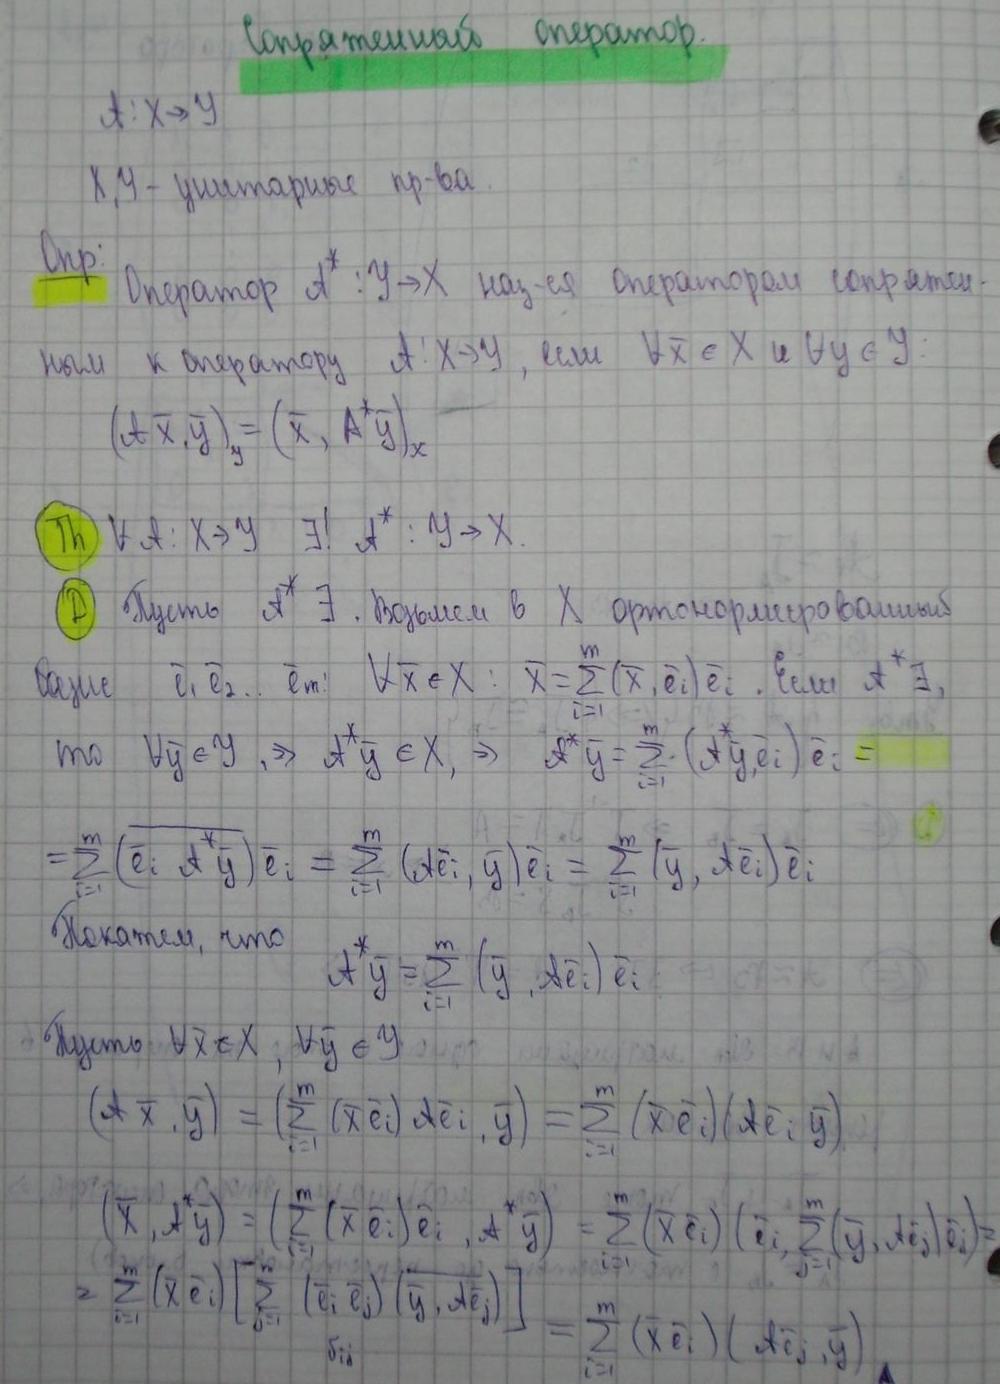 Сопряженный оператор.
A: X→Y
X, Y – унитарные пр-ва.
Опр:
Оператор A* : Y→X наз-ся оператором сопряжен-
ным к оператору A: X→Y, если ∀x̄ ∈ X и ∀y ∈ Y:
(Ax̄, ȳ)_y = (x̄, A*ȳ)_x
Th ∀ A: X→Y ∃! A* : Y→X.
D Пусть A* ∃. Возьмем в X ортонормированный
базис ē₁ ē₂ .. ēm: ∀x̄ ∈ X : x̄ = ∑_{i=1}^{m} (x̄, ēi) ēi. Если A* ∃,
то ∀ȳ ∈ Y, ⇒ A*ȳ ∈ X, ⇒ A*ȳ = ∑_{i=1}^{m} (A*ȳ, ēi) ēi =
= ∑_{i=1}^{m} \overline{(ēi A*ȳ)} ēi = ∑_{i=1}^{m} (Aēi, ȳ) ēi = ∑_{i=1}^{m} (ȳ, Aēi) ēi
Покажем, что
A*ȳ = ∑_{i=1}^{m} (ȳ, Aēi) ēi
Пусть ∀x̄ ∈ X, ∀ȳ ∈ Y
(A x̄, ȳ) = (∑_{i=1}^{m} (x̄ ēi) Aēi, ȳ) = ∑_{i=1}^{m} (x̄ ēi)(Aēi ȳ)
(x̄, A*ȳ) = (∑_{i=1}^{m} (x̄ ēi) ēi, A*ȳ) = ∑_{i=1}^{m} (x̄ ēi) (ēi, ∑_{j=1}^{m} (ȳ, Aēj) ēj) =
= ∑_{i=1}^{m} (x̄ ēi) [∑_{j=1}^{m} (ēi ēj) \overline{(ȳ, Aēj)}] = ∑_{i=1}^{m} (x̄ ēi) (Aēj, ȳ)
δij